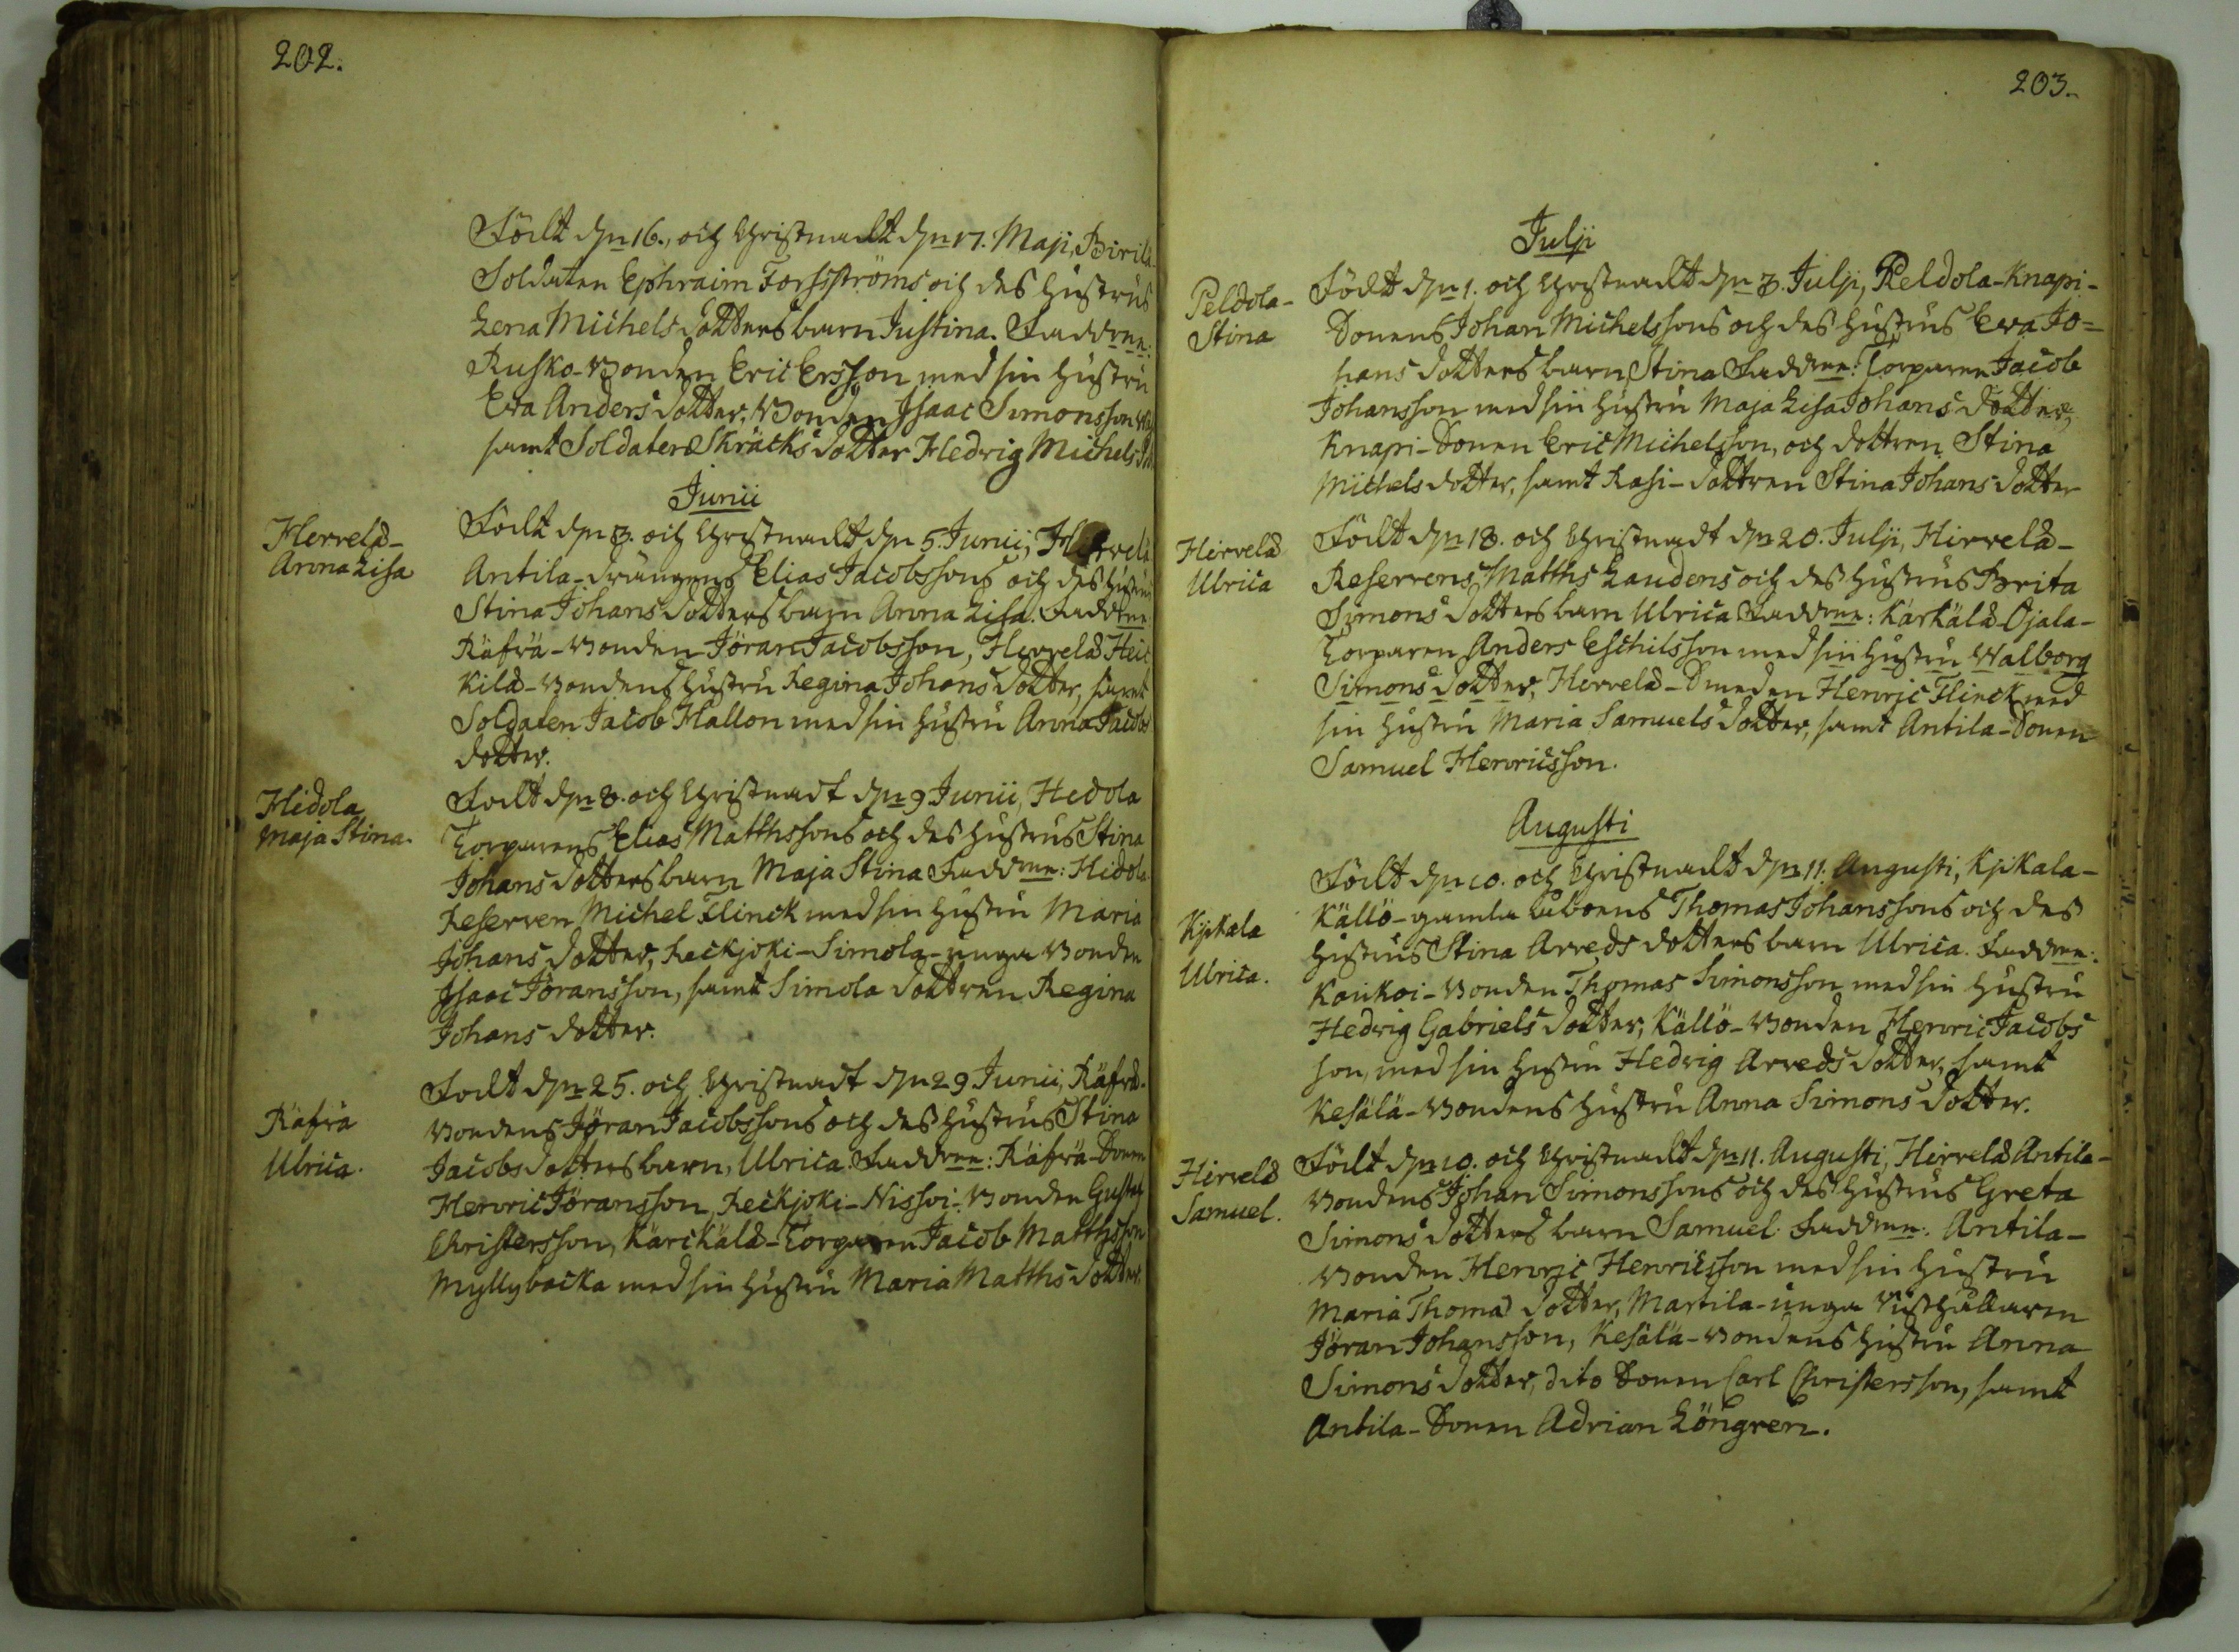 202.
Födt dn 16., och Christnadt dn 17. Maji, Birila-
Soldaten Ephraim Forsströms och des hustrus
Lena Michels dotters barn Justina. Faddrne:
Rusko-Bonden Eric Ersson med sin hustru
Eva Anders dotter, Bonden Isaac Simonsson
samt Soldaten Skräcks dotter Hedvig Michels
Junii
Hervelä-
Anna Lisa
Födt dn 3. och Christnadt dn 5. Junii, Hervelä
Antila-drängens Elias Jacobssons och des hustrus
Stina Johans dotters barn Anna Lisa. Faddrne
Räfvä-Bonden Jöran Jacobsson, Hirvelä Heic
kilä-Bondens hustru Regina Johans dotter, samt
Soldaten Jacob Hallon med sin hustru Anna Jacobs
dotter.
Hidola
Maja Stina.
Födt dn 8. och Christnadt dn 9 Junii, Hedola
Torparens Elias Matthssons och des hustrus Stina
Johans dotters barn Maja Stina Faddrne: Hidola
Reserven Michel Flinck med sin hustru Maria
Johans dotter, Reckjoki-Simola-unga Bonden
Isaac Jöransson, samt Simola dottren Regina
Johans dotter.
Räfvä
Ulrica.
Födt dn 25. och Christnadt dn 29 Junii, Räfvä-
Bondens Jöran Jacobssons och des hustrus Stina
Jacobs dotters barn, Ulrica. Faddrne: Räfvä-Sonen
Henric Jöransson, Reckjoki-Nissoi-Bonden Gustaf
Christersson, Kärckälä-Torparen Jacob Matthsson
Myllybacka med sin hustru Maria Matths dotter.
203.
Julji
Peldola-
Stina
Födt dn 1. och Christnadt dn 3. Julji, Peldola-Knapi-
Sonens Johan Michelssons och des hustrus Eva Jo=
hans dotters barn Stina Faddrne: Torparen Jacob
Johansson med sin hustru Maja Lisa Johans dotter,
Knapi-Sonen Eric Michelsson, och dottren Stina
Michels dotter, samt Rasi-dottren Stina Johans dotter
Hirvelä
Ulrica
Födt dn 18. och Christnadt dn 20. Julji, Hirvelä-
Reservens Matths Laudens och des hustrus Brita
Simons dotters barn Ulrica Faddrne: Karkälä-Ojala-
Torparen Anders Eschilsson med sin hustru Walborg
Simons dotter, Hirvelä-Smeden Henric Flinck med
sin hustru Maria Samuels dotter, samt Antila-Sonen
Samuel Henricsson.
Augusti
Kjkala
Ulrica.
Födt dn 10. och Christnadt dn 11. Augusti, Kjkala-
Källö-gamla Åboens Thomas Johanssons och des
hustrus Stina Arveds dotters barn Ulrica. Faddrne:
Koukoi-Bonden Thomas Simonsson med sin hustru
Hedvig Gabriels dotter, Källö-Bonden Henric Jacobs
son, med sin hustru Hedvig Arveds dotter, samt
Kesälä-Bondens hustru Anna Simons dotter.
Hirvelä
Samuel.
Födt dn 10. och Christnadt dn 11. Augusti, Hirvelä Antila-
Bondens Johan Simonssons och des hustrus Greta
Simons dotters barn Samuel. Faddrne: Antila-
Bonden Henric Henricsson med sin hustru
Maria Thomæ dotter, Martila-unga Rusthållaren
Jöran Johansson, Kesälä-Bondens hustru Anna
Simons dotter, dito Sonen Carl Christersson, samt
Antila-Sonen Adrian Löngren.